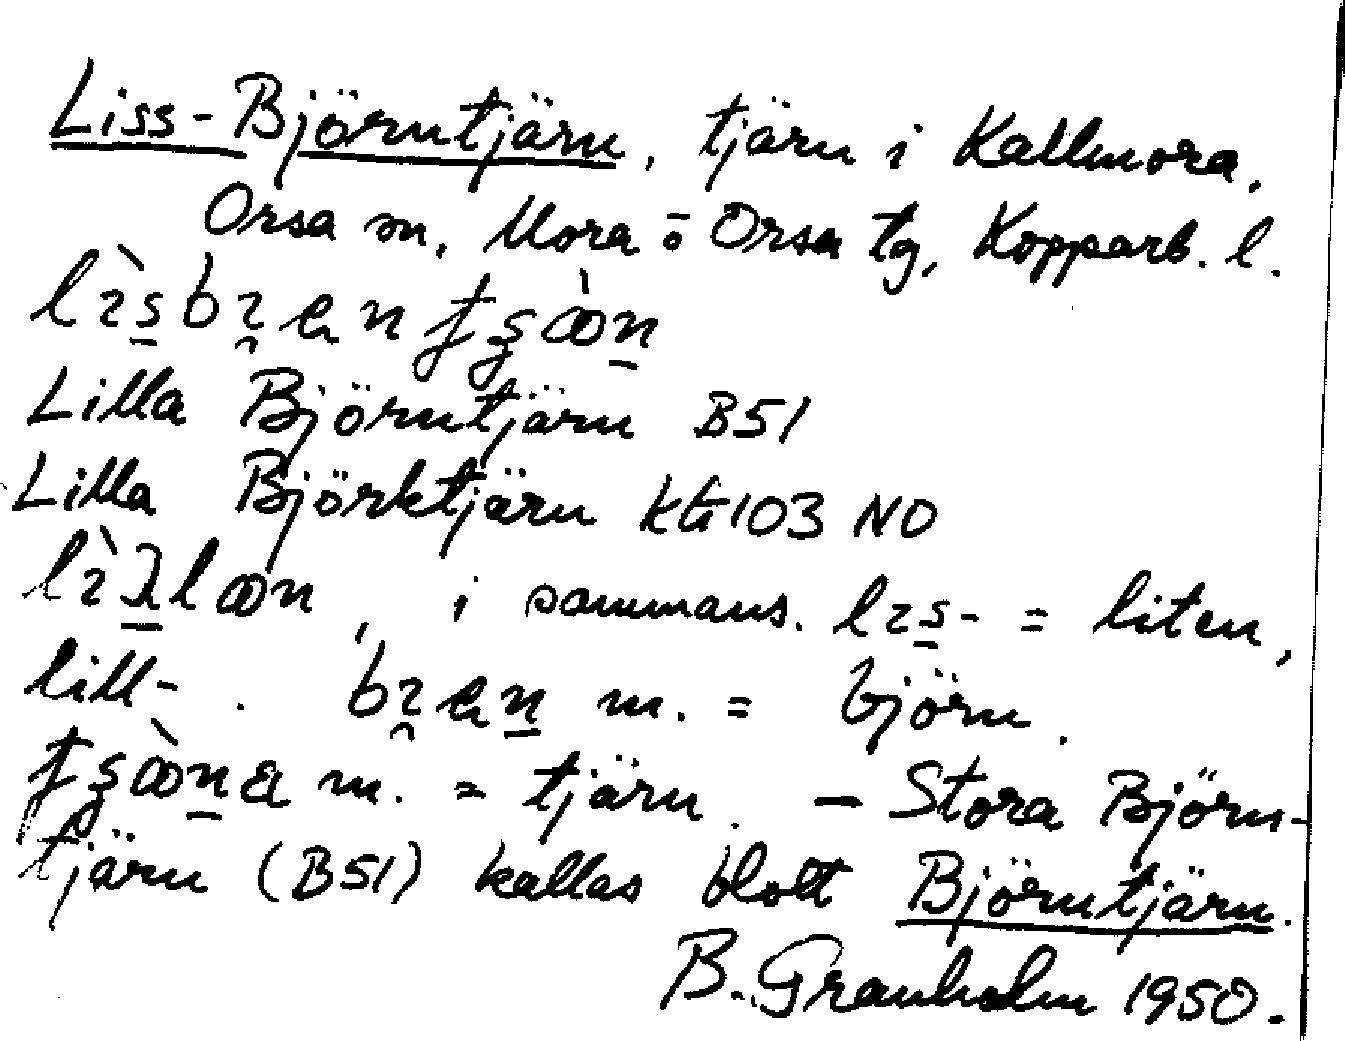 Liss-Björntjärn, tjärn i Kallmora,
Orsa sn, Mora o Orsa tg, Kopparb. l.
Lilla Björntjärn B51
Lilla Björktjärn KG103 NO
, i sammans. = liten,
lill-. m. = björn.
m. = tjärn. — Stora Björn-
tjärn (B51) kallas blott Björntjärn.
B. Granholm 1950.